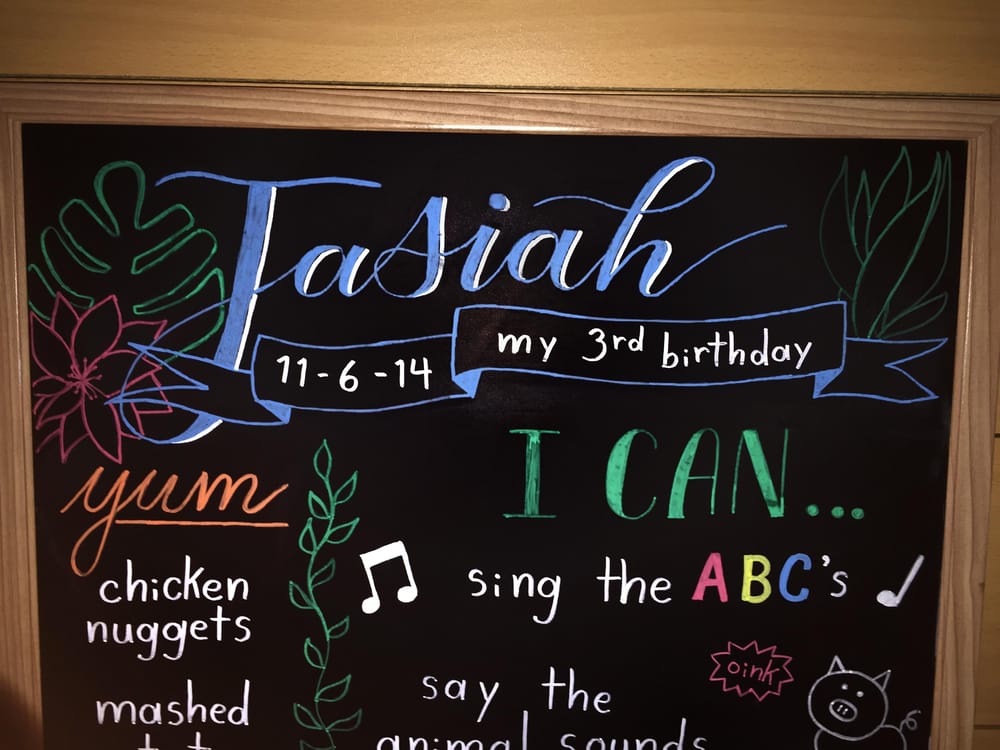 Tasiah
11-6-14 my 3rd birthday
yum
chicken
nuggets
mashed
I CAN...
sing the ABC's
oink
say the
animal sounds